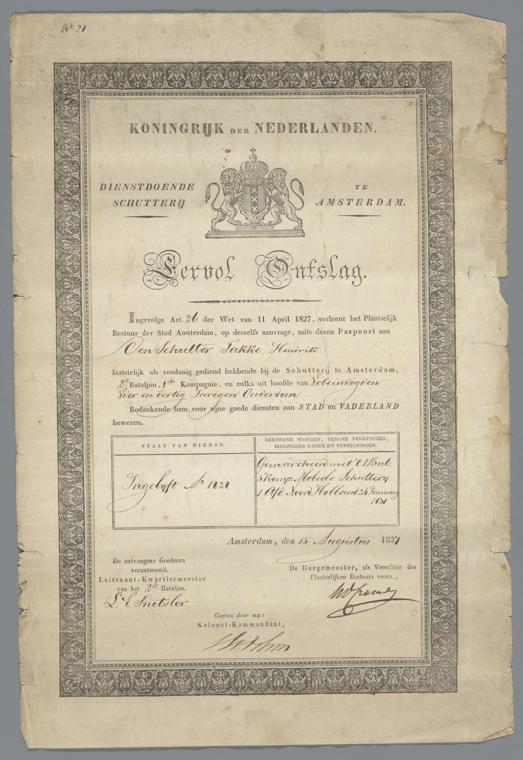 Nº 21
KONINGRIJK DER NEDERLANDEN.
DIENSTDOENDE SCHUTTERIJ
TE AMSTERDAM.
Eervol Ontslag.
Ingevolge Art. 26 der Wet van 11 April 1827, verleent het Plaatselijk
Bestuur der Stad Amsterdam, op deszelfs aanvrage, mits dezen Paspoort aan
Den Schutter Takke Hendrik
laatstelijk als zoodanig gediend hebbende bij de Schutterij te Amsterdam,
2de Bataljon, 1ste Kompagnie, en zulks uit hoofde van
Vier en dertig Jarigen Ouderdom
Bedankende hem voor zijne goede diensten aan STAD en VADERLAND
bewezen.
STAAT VAN DIENST.
BEKOMENE WONDEN, GEDANE VELDTOGTEN,
BIJZONDERE DADEN EN VERRIGTINGEN.
Ingelyft Aº 1828
Gemarcheerd met 't 1 Bat
Mobiele Schuttery
1 Afd Noord Holland 24 January
1831
Amsterdam, den 15 Augustus 1837
De ontvangene Goederen
verantwoord.
Luitenant-Kwartiermeester
van het 2de Bataljon.
De Burgemeester, als Voorzitter des
Plaatselijken Bestuurs voorn.,
Gezien door mij:
Kolonel-Kommandant,